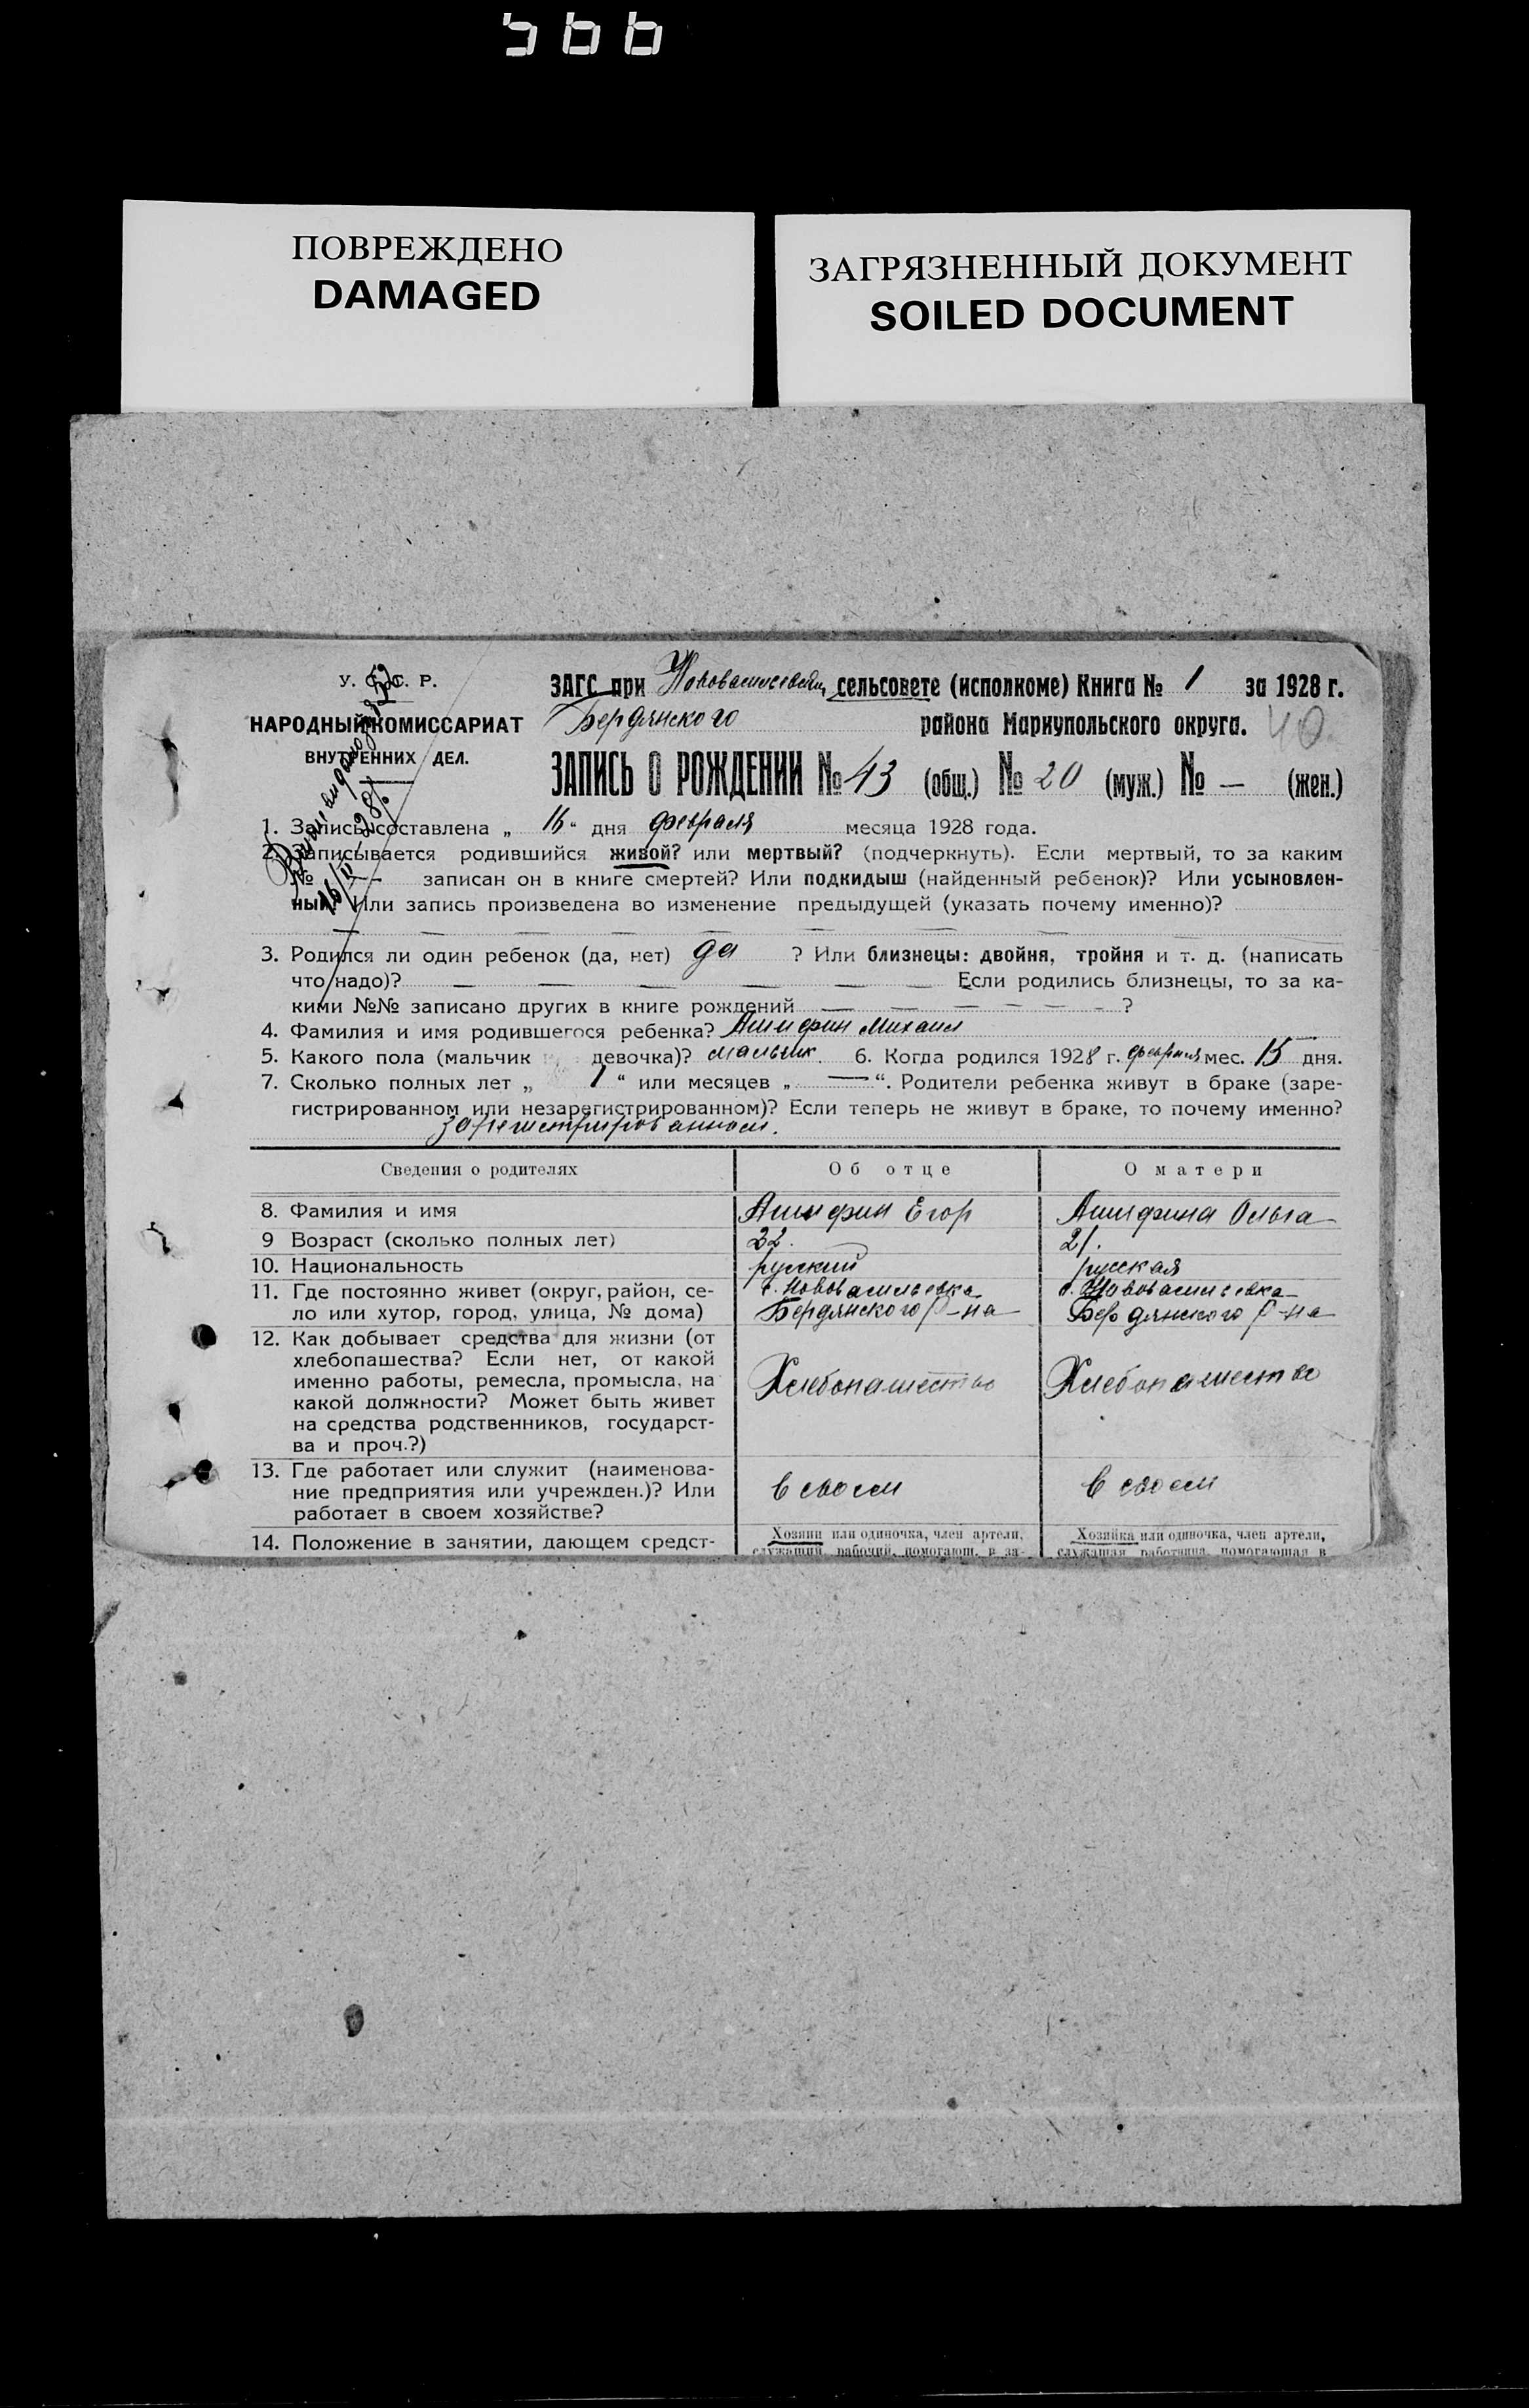 566
ПОВРЕЖДЕНО
DAMAGED
ЗАГРЯЗНЕННЫЙ ДОКУМЕНТ
SOILED DOCUMENT
У. С. С. Р.
НАРОДНЫЙ КОМИССАРИАТ
ВНУТРЕННИХ ДЕЛ.
ЗАГС при сельсовете (исполкоме) Книга № 1 за 1928 г.
Бердянского района Мариупольского округа. 40
ЗАПИСЬ О РОЖДЕНИИ № 43 (общ.) № 20 (муж.) № — (жен.)
1. Запись составлена „ 16 “ дня февраля месяца 1928 года.
2. Записывается родившийся живой? или мертвый? (подчеркнуть). Если мертвый, то за каким
№ — записан он в книге смертей? Или подкидыш (найденный ребенок)? Или усыновлен-
ный? Или запись произведена во изменение предыдущей (указать почему именно)?
3. Родился ли один ребенок (да, нет) да ? Или близнецы: двойня, тройня и т. д. (написать
что надо)? — — — — — — Если родились близнецы, то за ка-
кими №№ записано других в книге рождений — — — — — — ?
4. Фамилия и имя родившегося ребенка? Михаил
5. Какого пола (мальчик девочка)? мальчик. 6. Когда родился 1928 г. февраля мес. 15 дня.
7. Сколько полных лет „ 1 “ или месяцев „ — “. Родители ребенка живут в браке (заре-
гистрированном или незарегистрированном)? Если теперь не живут в браке, то почему именно?
зарегистрированном.
Сведения о родителях Об отце О матери
8. Фамилия и имя Егор Ольга
9 Возраст (сколько полных лет) 32. 21.
10. Национальность русский русская
11. Где постоянно живет (округ, район, се- с. Нововасильевка с. Нововасильевка
ло или хутор, город, улица, № дома) Бердянского р-на Бердянского р-на
12. Как добывает средства для жизни (от
хлебопашества? Если нет, от какой
именно работы, ремесла, промысла, на Хлебопашество Хлебопашество
какой должности? Может быть живет
на средства родственников, государст-
ва и проч.?)
13. Где работает или служит (наименова-
ние предприятия или учрежден.)? Или в своем в своем
работает в своем хозяйстве?
14. Положение в занятии, дающем средст- Хозяин или одиночка, член артели, Хозяйка или одиночка, член артели,
служащий, рабочий, помогающ. в за- служащая, работница, помогающая в